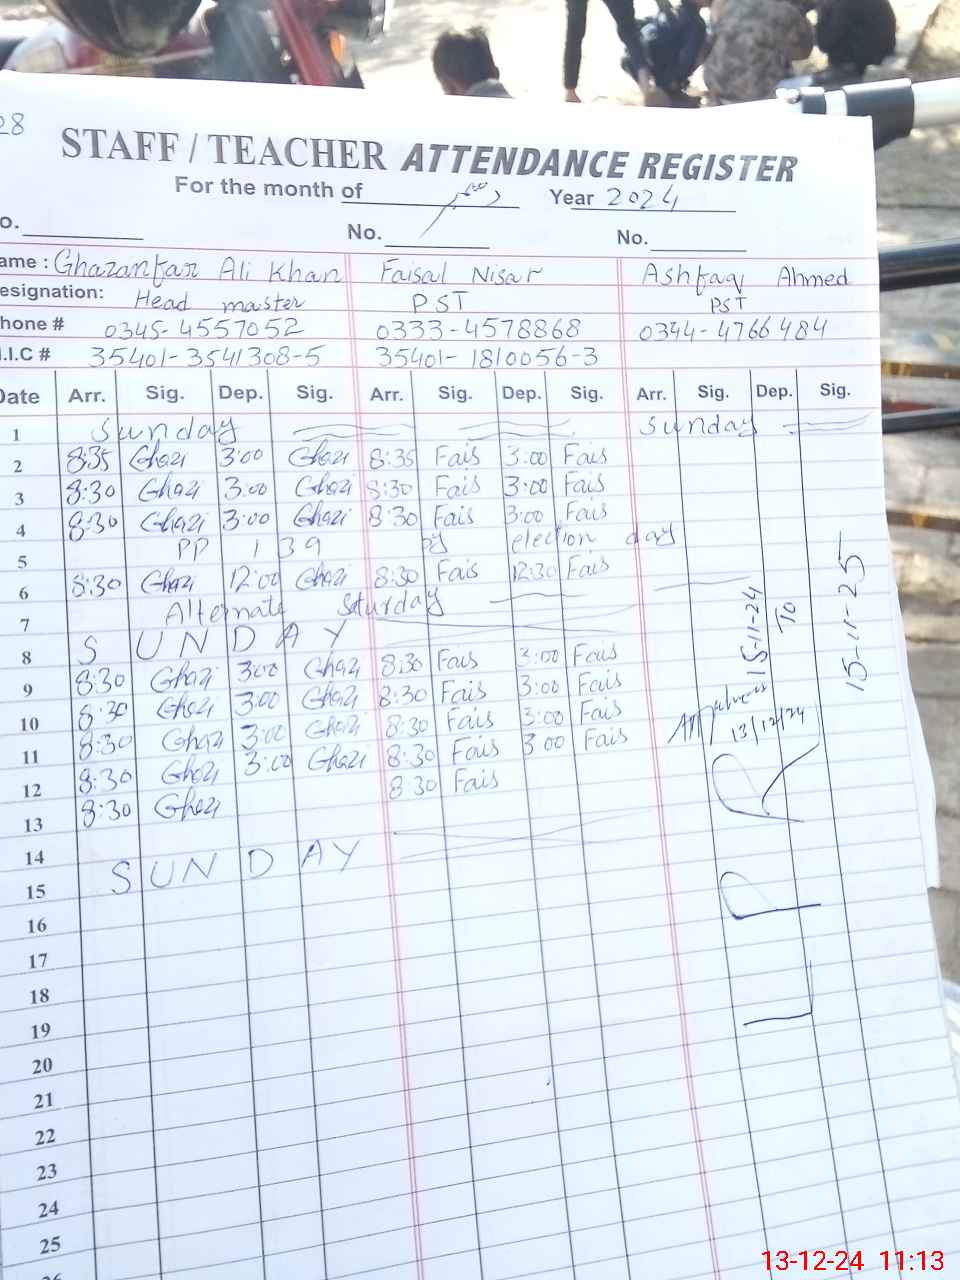 28
STAFF / TEACHER ATTENDANCE REGISTER
For the month of دسمبر Year 2024
o. No. No.
ame : Ghazanfar Ali Khan Faisal Nisar Ashfaq Ahmed
esignation: Head master PST PST
hone # 0345-4557052 0333-4578868 0344-4766484
.I.C # 35401-3541308-5 35401-1810056-3
Date Arr. Sig. Dep. Sig. Arr. Sig. Dep. Sig. Arr. Sig. Dep. Sig.
1 Sunday Sunday
2 8:35 Ghazi 3:00 Ghazi 8:35 Fais 3:00 Fais
3 8:30 Ghazi 3:00 Ghazi 8:30 Fais 3:00 Fais
4 8:30 Ghazi 3:00 Ghazi 8:30 Fais 3:00 Fais
5 PP 139 By election day
6 8:30 Ghazi 12:00 Ghazi 8:30 Fais 12:30 Fais
7 Alternate Saturday
8 SUNDAY
9 8:30 Ghazi 3:00 Ghazi 8:30 Fais 3:00 Fais
10 8:30 Ghazi 3:00 Ghazi 8:30 Fais 3:00 Fais
11 8:30 Ghazi 3:00 Ghazi 8:30 Fais 3:00 Fais
12 8:30 Ghazi 3:00 Ghazi 8:30 Fais 3:00 Fais
13 8:30 Ghazi 8:30 Fais
14
15 SUNDAY
16
17
18
19
20
21
22
23
24
25
26
15-11-24
To
15-11-25
13/12/24
LPR
13-12-24 11:13